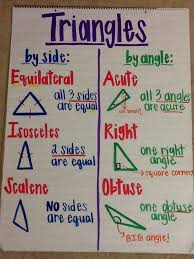 Triangles
by side:
Equilateral
all 3 sides
are equal
Isosceles
2 sides
are equal
Scalene
NO sides
are equal
by angle:
Acute
all 3 angles
are acute
Right
one right
angle
square corner
Obtuse
one obtuse
angle
BIG angle!